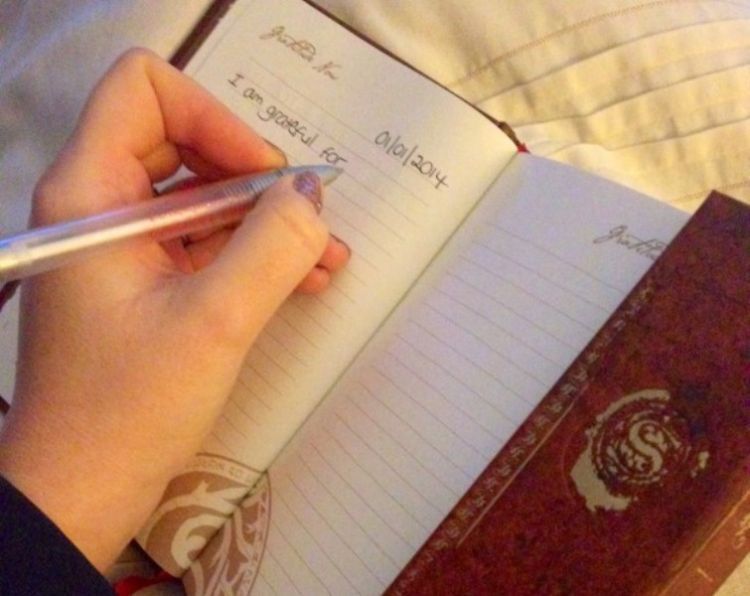 Gratitude
01/01/2014
I am grateful for